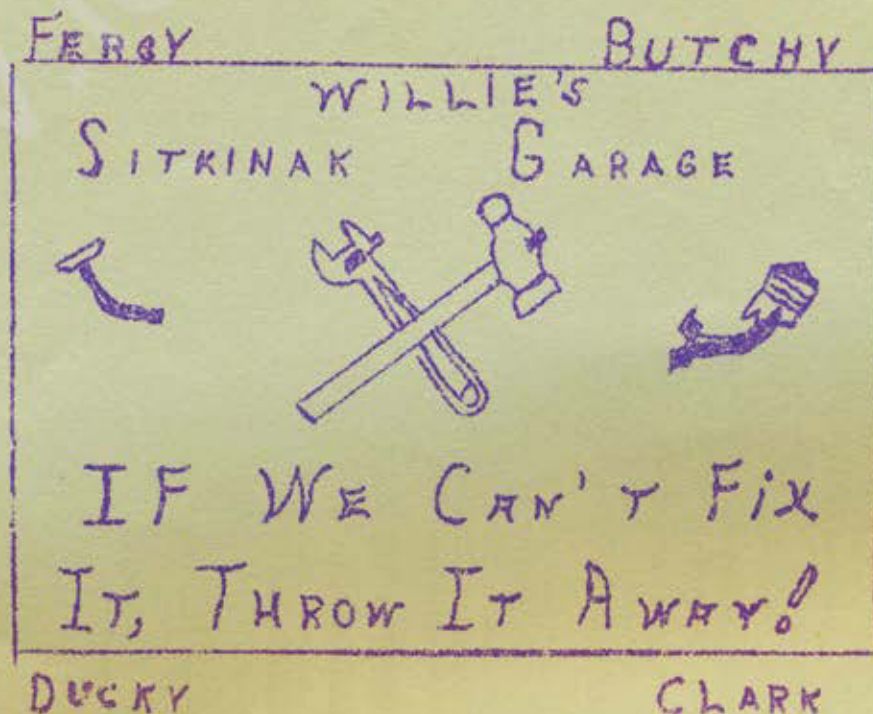 FERGY BUTCHY
WILLIE'S
SITKINAK GARAGE
IF WE CAN'T FIX
IT, THROW IT AWAY!
DUCKY CLARK